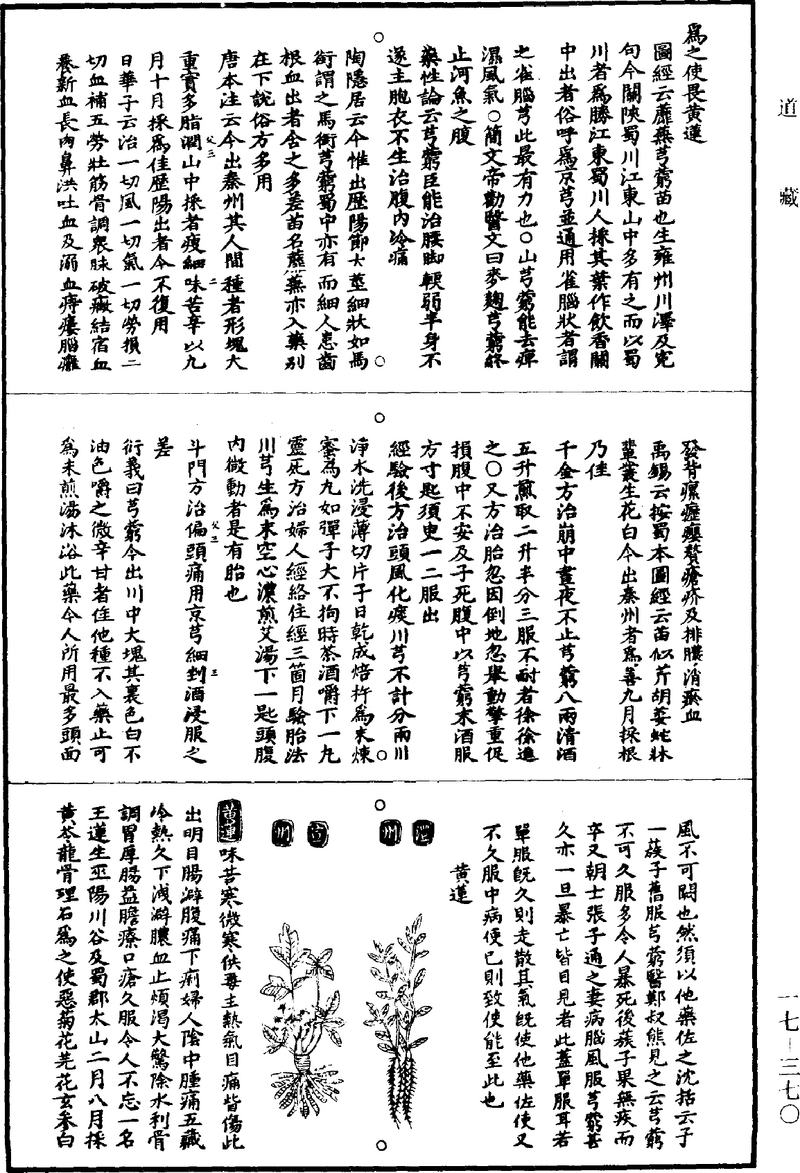 道藏
為之使畏黃蓮
圖經云蘼蕪芎藭苗也生雍州川澤及冤
句今關陝蜀川江東山中多有之而以蜀
川者為勝江東蜀川人採其葉作飲香關
中出者俗呼為京芎並通用雀腦狀者謂
之雀腦芎此最有力也○山芎藭能去癉
濕風氣○簡文帝勸醫文曰麥麴芎藭終
止河魚之腹
藥性論云芎藭臣能治腰脚軟弱半身不
遂主胞衣不生治腹內冷痛
陶隱居云今惟出歷陽節大莖細狀如馬
銜謂之馬銜芎藭蜀中亦有而細人患齒
根血出者含之多差苗名蘼蕪亦入藥別
在下說俗方多用
唐本注云今出秦州其人間種者形塊大
重實多脂潤山中採者瘦細味苦辛以九
月十月採為佳歷陽出者今不復用
日華子云治一切風一切氣一切勞損二
切血補五勞壯筋骨調衆脉破癥結宿血
養新血長肉鼻洪吐血及溺血痔瘻腦癰
發背瘰癧癭贅瘡疥及排膿消瘀血
禹錫云按蜀本圖經云苗似芹胡荽蛇牀
輩叢生花白今出秦州者為善九月採根
乃佳
千金方治崩中晝夜不止芎藭八兩清酒
五升煎取二升半分三服不耐者徐徐進
之○又方治胎忽因倒地忽舉動擎重促
損腹中不安及子死腹中以芎藭末酒服
方寸匙須臾一二服出
經驗後方治頭風化痰川芎不計分兩川
淨水洗浸薄切片子日乾成焙杵為末煉
蜜為丸如彈子大不拘時茶酒嚼下一丸
靈死方治婦人經絡住經三箇月驗胎法
川芎生為末空心濃煎艾湯下一匙頭腹
內微動者是有胎也
斗門方治偏頭痛用京芎細剉酒浸服之
差
衍義曰芎藭今出川中大塊其裏色白不
油色嚼之微辛甘者佳他種不入藥止可
為末煎湯沐浴此藥今人所用最多頭面
風不可闕也然須以他藥佐之沈括云予
一族子舊服芎藭醫鄭叔熊見之云芎藭
不可久服多令人暴死後族子果無疾而
卒又朝士張子通之妻病腦風服芎藭甚
久亦一旦暴亡皆目見者此蓋單服耳若
單服既久則走散其氣既使他藥佐使又
不久服中病便已則致使能至此也
黃蓮
澧州
宣州
黃連味苦寒微寒無毒主熱氣目痛眥傷泣
出明目腸澼腹痛下痢婦人陰中腫痛五藏
冷熱久下洩澼膿血止煩渴大驚除水利骨
調胃厚腸益膽療口瘡久服令人不忘一名
王蓮生巫陽川谷及蜀郡太山二月八月採
黃芩龍骨理石為之使惡菊花芫花玄參白
一七—三七〇